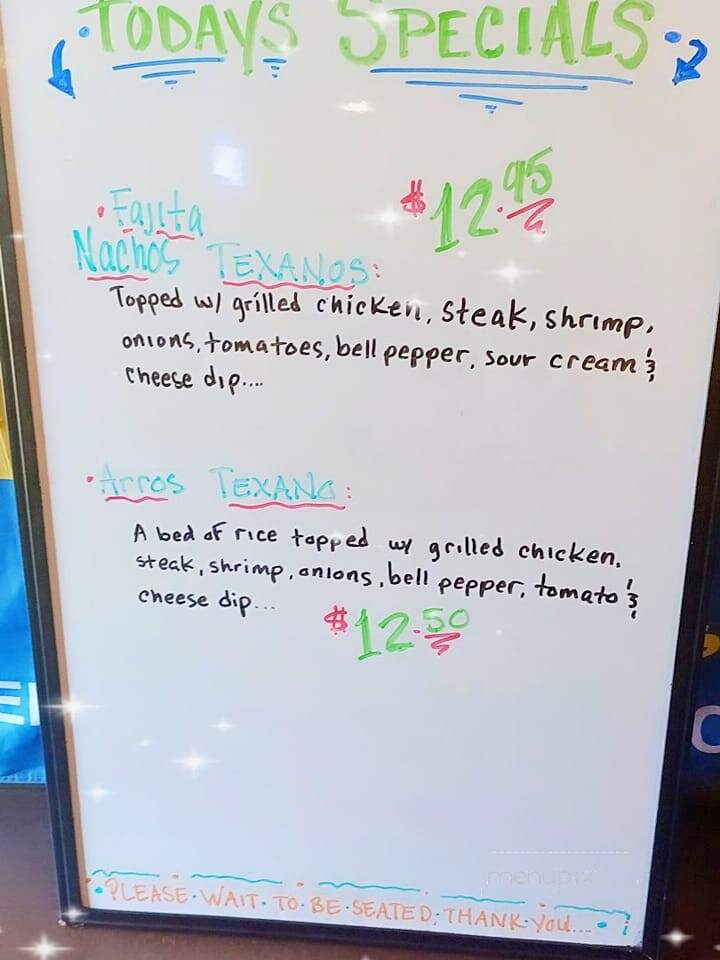 TODAYS SPECIALS
• Fajita
$12.95
Nachos TEXANOS:
Topped w/ grilled chicken, steak, shrimp,
onions, tomatoes, bell pepper, sour cream &
cheese dip....
• Arros TEXANO:
A bed of rice topped w/ grilled chicken,
steak, shrimp, onions, bell pepper, tomato &
cheese dip...
$12.50
menupix
• PLEASE • WAIT • TO • BE • SEATED; THANK you...